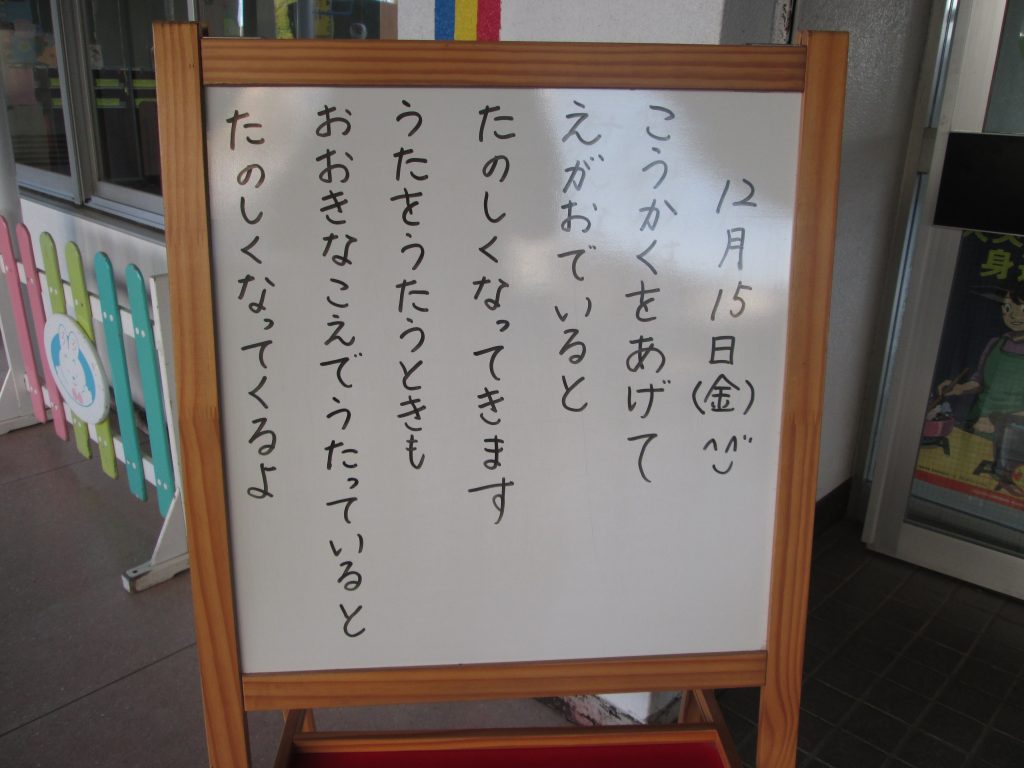 12月15日(金)^^
こうかくをあげて
えがおでいると
たのしくなってきます
うたをうたうときも
おおきなこえでうたっていると
たのしくなってくるよ
身